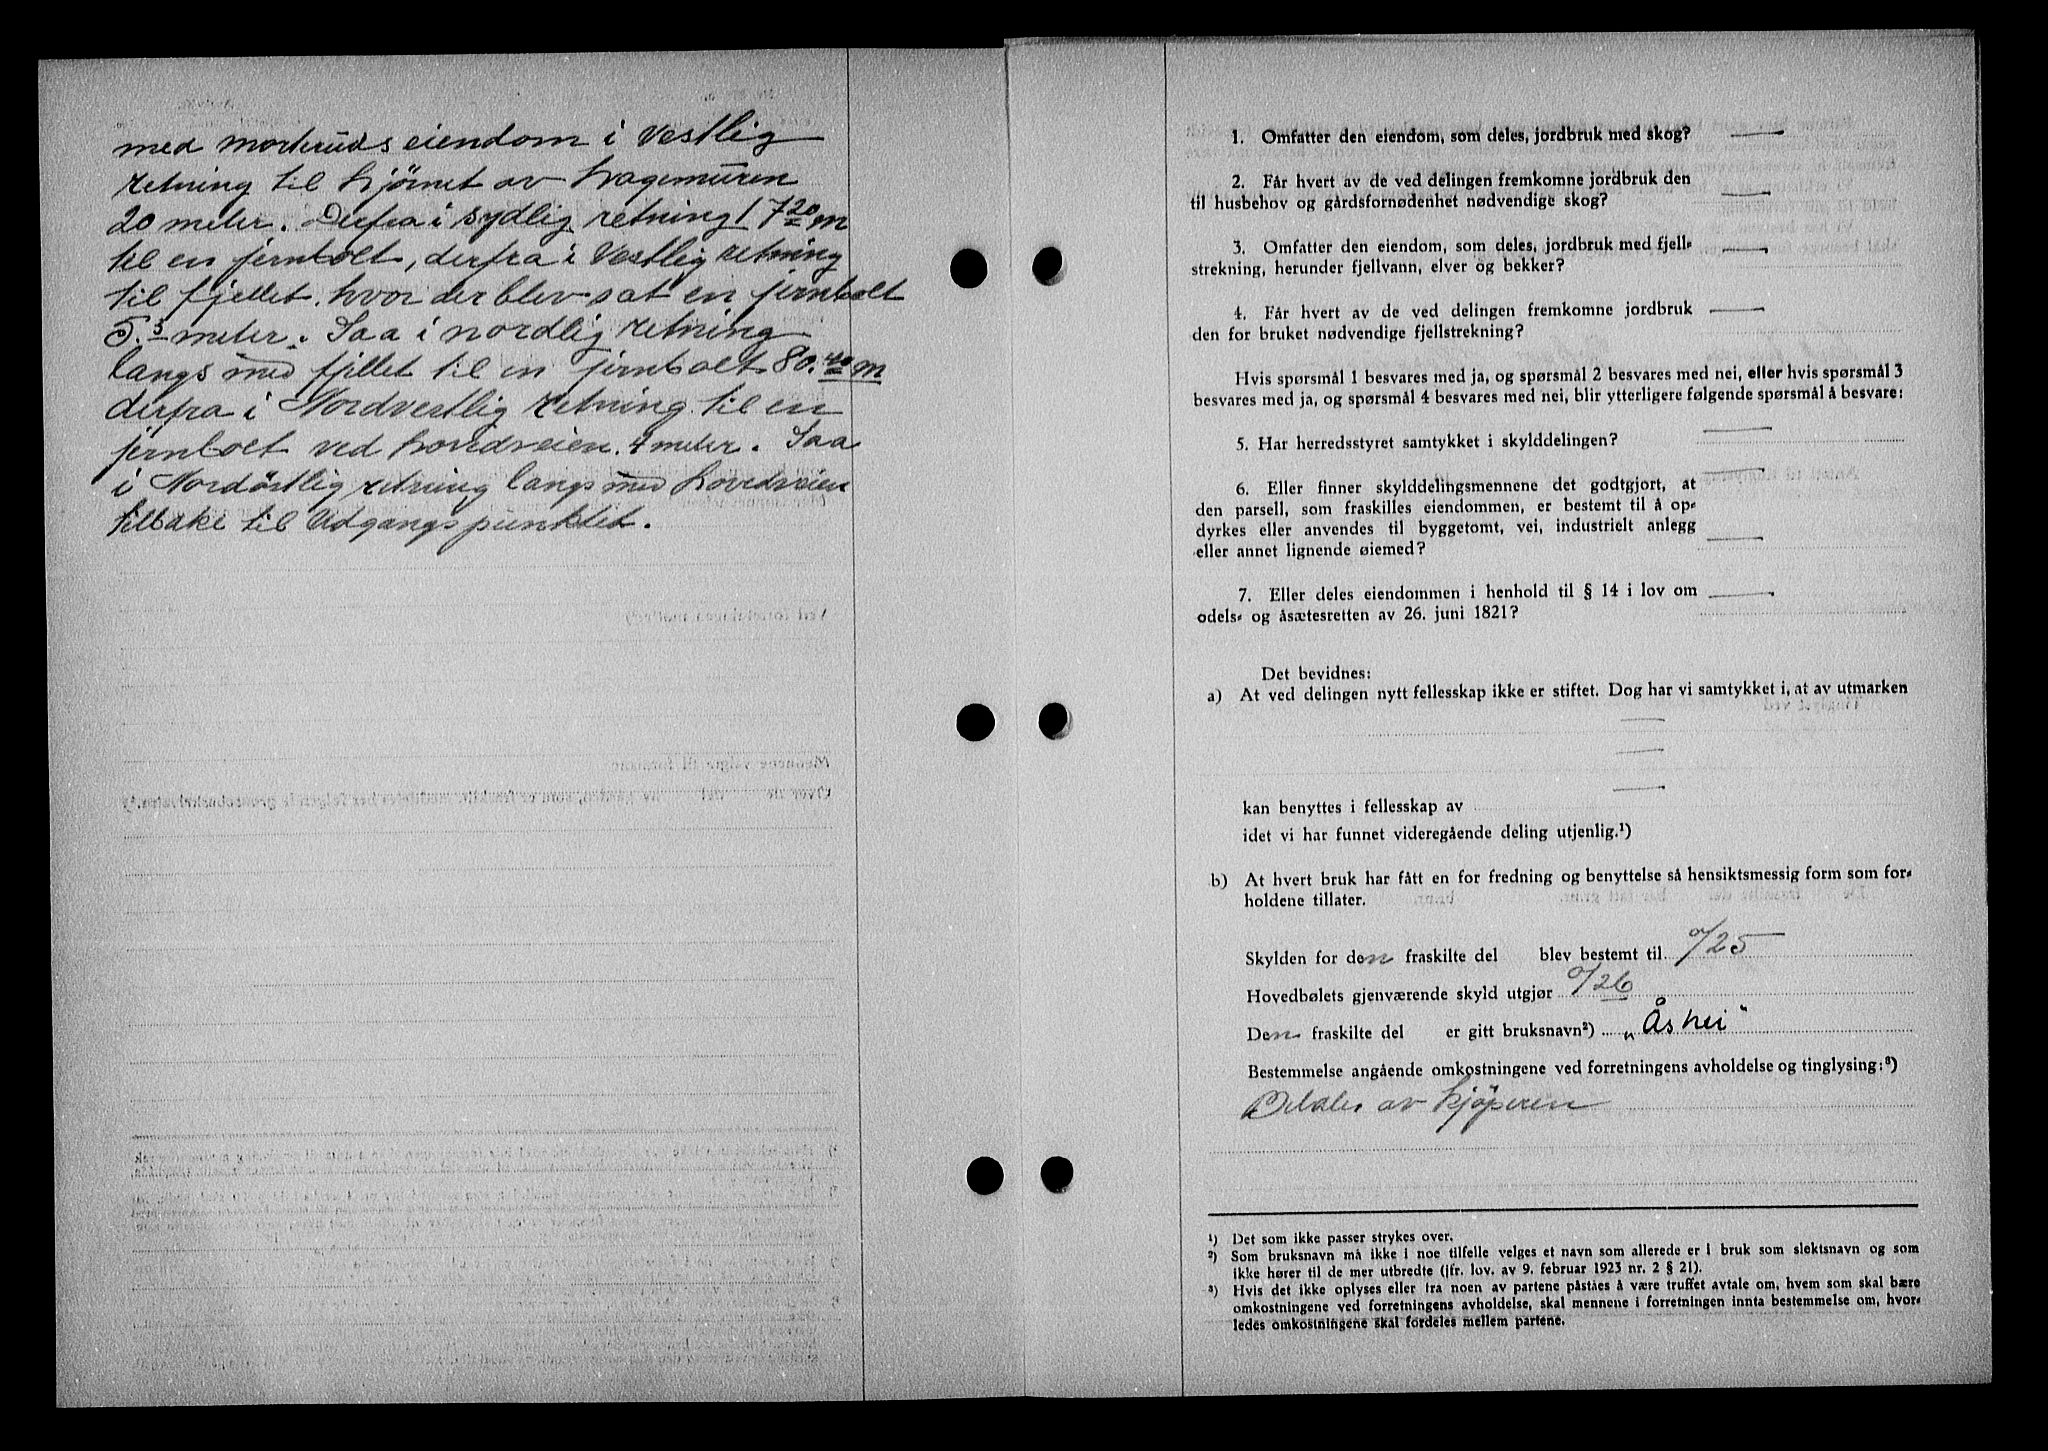 med Morteruds eiendom i Vestlig
retning til hjørnet av havemuren
20 meter. Derfra i sydlig retning 17 20 m
til en jernbolt, derfra i Vestlig retning
til fjellet, hvor der blev sat en jernbolt
5.5 meter. Saa i nordlig retning
langs med fjellet til en jernbolt 80.40 m
derfra i Nordvestlig retning til en
jernbolt ved hovedveien. 4 meter. Saa
i Nordöstlig retning langs med hovedveien
tilbake til Udgangspunktet.
1. Omfatter den eiendom, som deles, jordbruk med skog? —
2. Får hvert av de ved delingen fremkomne jordbruk den
til husbehov og gårdsfornødenhet nødvendige skog? —
3. Omfatter den eiendom, som deles, jordbruk med fjell-
strekning, herunder fjellvann, elver og bekker? —
4. Får hvert av de ved delingen fremkomne jordbruk —
den for bruket nødvendige fjellstrekning?
Hvis spørsmål 1 besvares med ja, og spørsmål 2 besvares med nei, eller hvis spørsmål 3
besvares med ja, og spørsmål 4 besvares med nei, blir ytterligere følgende spørsmål å besvare:
5. Har herredsstyret samtykket i skylddelingen? —
6. Eller finner skylddelingsmennene det godtgjort, at —
den parsell, som fraskilles eiendommen, er bestemt til å op-
dyrkes eller anvendes til byggetomt, vei, industrielt anlegg
eller annet lignende øiemed? —
7. Eller deles eiendommen i henhold til § 14 i lov om —
odels- og åsætesretten av 26. juni 1821?
Det bevidnes:
a) At ved delingen nytt fellesskap ikke er stiftet. Dog har vi samtykket i, at av utmarken
—
—
—
kan benyttes i fellesskap av
idet vi har funnet videregående deling utjenlig.¹)
b) At hvert bruk har fått en for fredning og benyttelse så hensiktsmessig form som for-
holdene tillater.
Skylden for den fraskilte del blev bestemt til 0/25
Hovedbølets gjenværende skyld utgjør 0/26
Den fraskilte del er gitt bruksnavn²) „Åshei"
Bestemmelse angående omkostningene ved forretningens avholdelse og tinglysing:³)
Betales av kjöperen
¹) Det som ikke passer strykes over.
²) Som bruksnavn må ikke i noe tilfelle velges et navn som allerede er i bruk som slektsnavn og som
ikke hører til de mer utbredte (jfr. lov. av 9. februar 1923 nr. 2 § 21).
³) Hvis det ikke oplyses eller fra noen av partene påståes å være truffet avtale om, hvem som skal bære
omkostningene ved forretningens avholdelse, skal mennene i forretningen innta bestemmelse om, hvor-
ledes omkostningene skal fordeles mellem partene.